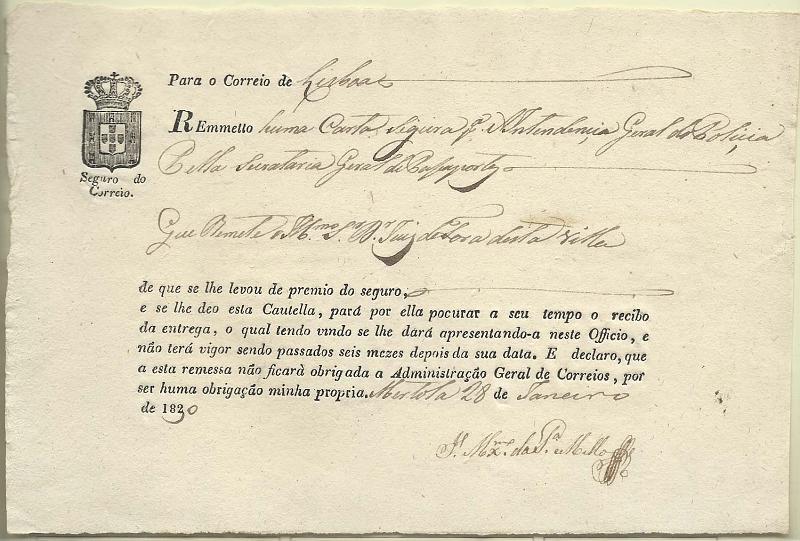 Para o Correio de Lisboa
REmmetto huma Carta Segura pª Intendencia Geral da Policia
Pella Secretaria Geral de Passaportes
Que Remete o Illmo Sr Dr Juiz de Fora desta Villa
Seguro do
Correio.
de que se lhe levou de premio do seguro,
e se lhe deo esta Cautella, pará por ella pocurar a seu tempo o recibo
da entrega, o qual tendo vindo se lhe dará apresentando-a neste Officio, e
não terá vigor sendo passados seis mezes depois da sua data. E declaro, que
a esta remessa não ficará obrigada a Administração Geral de Correios, por
ser huma obrigação minha propria. Mertola 28 de Janeiro
de 1830
da